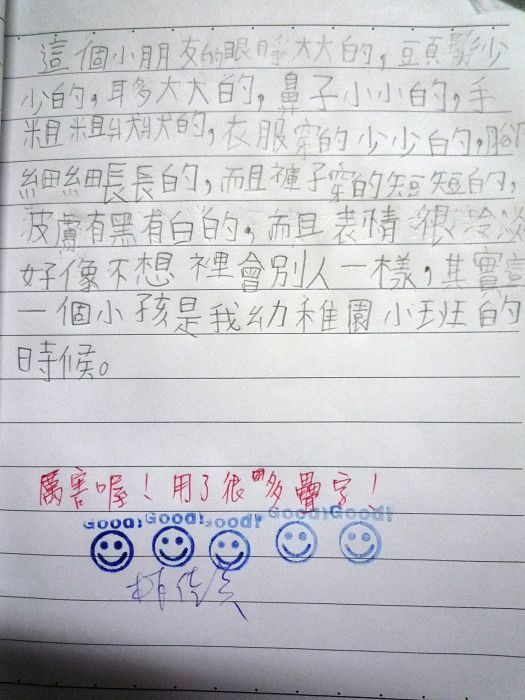 這個小朋友的眼睜大大的，頭髮少
少的，耳多大大的，鼻子小小的，手
粗粗壯壯的，衣服穿的少少的，腳
細細長長的，而且褲子穿的短短的，
皮膚有黑有白的，而且表情很冷淡
好像不想裡會別人一樣，其實這
一個小孩是我幼稚園小班的
時候。
厲害喔！用了很多疊字！
Good! Good! Good! Good! Good!